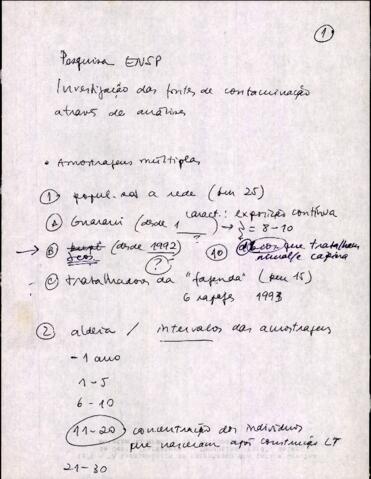 1
Pesquisa ENSP
Investigação das fontes de contaminação
através de análises
• Amostragens múltiplas
① popul. sob a rede (em 25)
caract.: exposição contínua
Ⓐ Guarani (desde 1___ ) → = 8-10
?
→ Ⓑ (desde 1992) 10 que trabalham
? capina
Ⓒ trabalhadores da "fazenda" (em 15)
6 1993
② aldeia / intervalos das amostragens
- 1 ano
1-5
6-10
11-20 : concentração dos indivíduos
que nasceram após construção LT
21-30